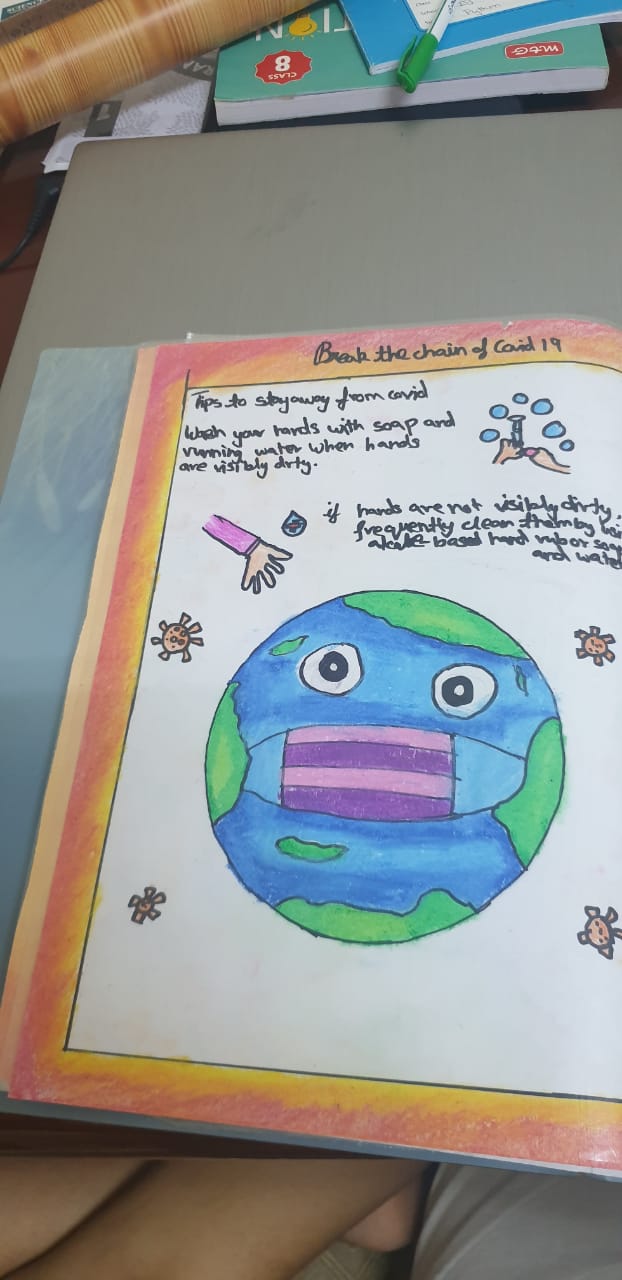 TION
CLASS
8
MTG
Python
Break the chain of Covid 19
Tips to stay away from covid
Wash your hands with soap and
running water when hands
are visibly dirty.
if hands are not visibly dirty,
frequently clean them by
based hand rub or
and